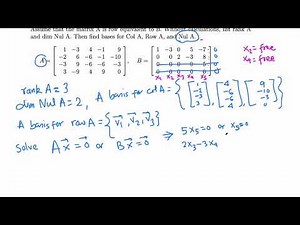 Assume that the matrix A is row equivalent to B. Without calculations, list rank A
and dim Nul A. Then find bases for Col A, Row A, and Nul A.
A = [ 1 -3 4 -1 9 B = [ 1 -3 0 5 -7 x₃ = free
-2 6 -6 -1 -10 0 0 2 -3 8 x₄ = free
-3 9 -6 -6 -3 0 0 0 0 5
3 -9 4 9 0 ] 0 0 0 0 0 ]
x₁ x₂ x₃ x₄ x₅
rank A = 3
dim Nul A = 2, A basis for col A = { [ 1 -2 -3 3 ], [ 4 -6 -6 4 ], [ 9 -10 -3 0 ] }
A basis for row A = { v₁, v₂, v₃ }
Solve Ax = 0 or Bx = 0 ⇒ 5x₅ = 0 or x₅ = 0
2x₃ - 3x₄